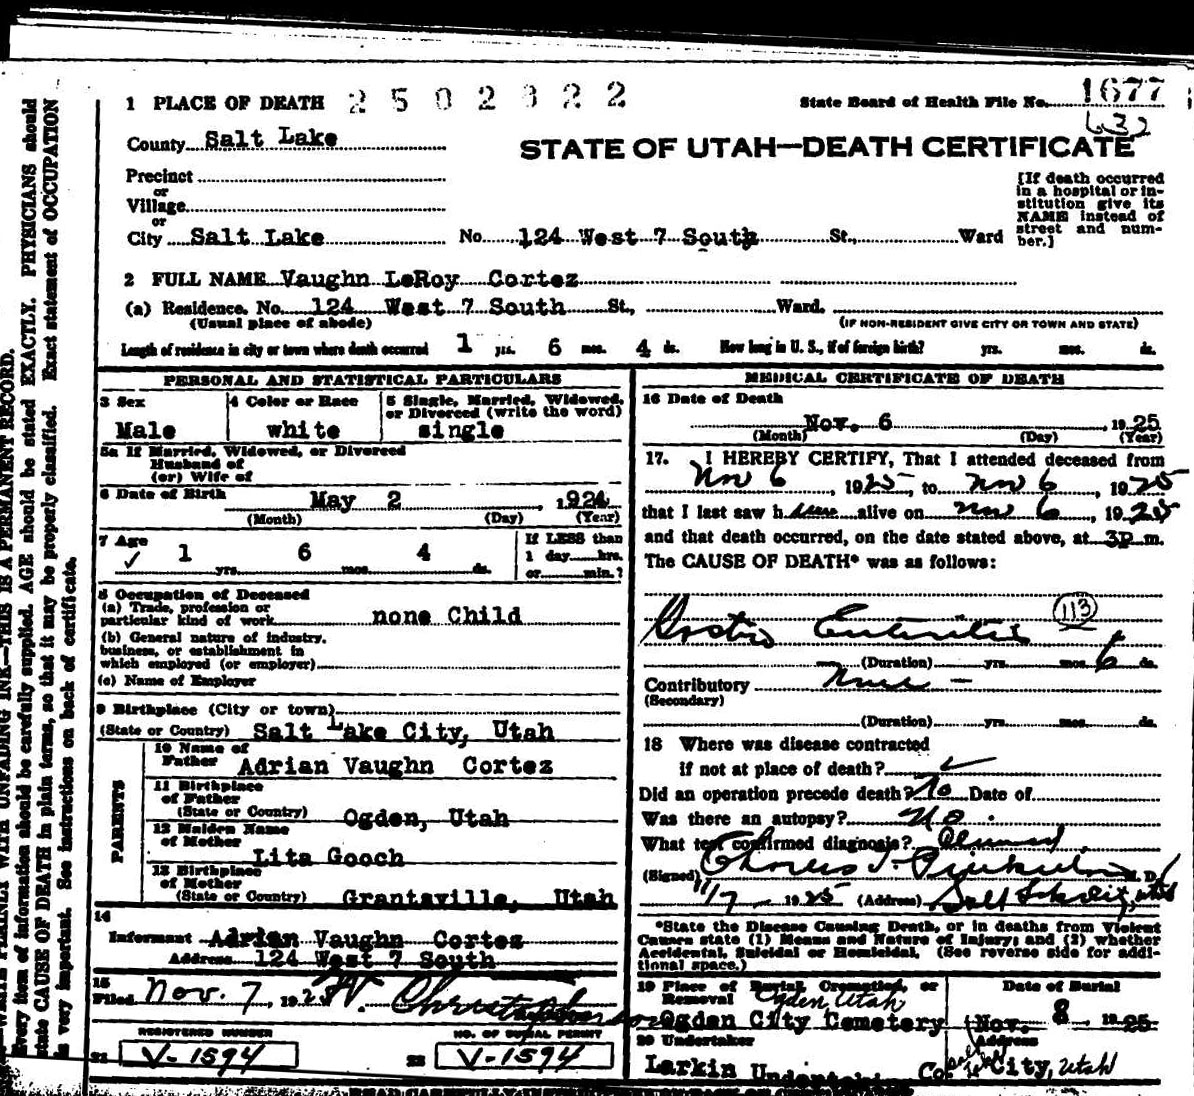 1 PLACE OF DEATH 2502322
State Board of Health File No. 1677
632
County Salt Lake
STATE OF UTAH—DEATH CERTIFICATE
Precinct
or
Village
or
City Salt Lake No. 124 West 7 South St., Ward
[If death occurred
in a hospital or in-
stitution give its
NAME instead of
street and num-
ber.]
2 FULL NAME Vaughn LeRoy Cortez
(a) Residence. No. 124 West 7 South St., Ward.
(Usual place of abode) (IF NON-RESIDENT GIVE CITY OR TOWN AND STATE)
Length of residence in city or town where death occurred 1 yrs. 6 mos. 4 ds. How long in U. S., if of foreign birth? yrs. mos. ds.
PERSONAL AND STATISTICAL PARTICULARS
3 Sex
Male
4 Color or Race
white
5 Single, Married, Widowed,
or Divorced (write the word)
single
5a If Married, Widowed, or Divorced
Husband of
(or) Wife of
6 Date of Birth May 2, 1924
(Month) (Day) (Year)
7 Age
✓ 1 6 4
yrs. mos. ds.
If LESS than
1 day hrs.
or min.?
8 Occupation of Deceased
(a) Trade, profession or
particular kind of work none Child
(b) General nature of industry,
business, or establishment in
which employed (or employer)
(c) Name of Employer
9 Birthplace (City or town)
(State or Country) Salt Lake City, Utah
PARENTS
10 Name of
Father Adrian Vaughn Cortez
11 Birthplace
of Father
(State or Country) Ogden, Utah
12 Maiden Name
of Mother
Lita Gooch
13 Birthplace
of Mother
(State or Country) Grantsville, Utah
14
Informant Adrian Vaughn Cortez
Address 124 West 7 South
15
Filed Nov. 7, 1925
REGISTERED NUMBER
21 V-1594
NO. OF BURIAL PERMIT
22 V-1594
MEDICAL CERTIFICATE OF DEATH
16 Date of Death
Nov. 6, 1925
(Month) (Day) (Year)
17. I HEREBY CERTIFY, That I attended deceased from
Nov 6, 1925, to Nov 6, 1925
that I last saw him alive on Nov 6, 1925
and that death occurred, on the date stated above, at 3P m.
The CAUSE OF DEATH* was as follows:
Gastro Enteritis 113
(Duration) yrs. mos. 6 ds.
Contributory None —
(Secondary)
(Duration) yrs. mos. ds.
18 Where was disease contracted
if not at place of death? ✓
Did an operation precede death? No Date of
Was there an autopsy? No.
What test confirmed diagnosis? Clinical
(Signed) Charles M. D.
11/7 - 1925 (Address) Salt Lake City, Utah
*State the Disease Causing Death, or in deaths from Violent
Causes state (1) Means and Nature of Injury; and (2) whether
Accidental, Suicidal or Homicidal. (See reverse side for addi-
tional space.)
19 Place of Burial, Cremation, or
Removal Ogden, Utah
Ogden City Cemetery
Date of Burial
Nov. 8 1925
20 Undertaker
Larkin Undertaking Co
Address
Salt Lake City, Utah
WRITE PLAINLY WITH UNFADING INK—THIS IS A PERMANENT RECORD.
Every item of information should be carefully supplied. AGE should be stated EXACTLY. PHYSICIANS should
state CAUSE OF DEATH in plain terms, so that it may be properly classified. Exact statement of OCCUPATION
is very important. See instructions on back of certificate.